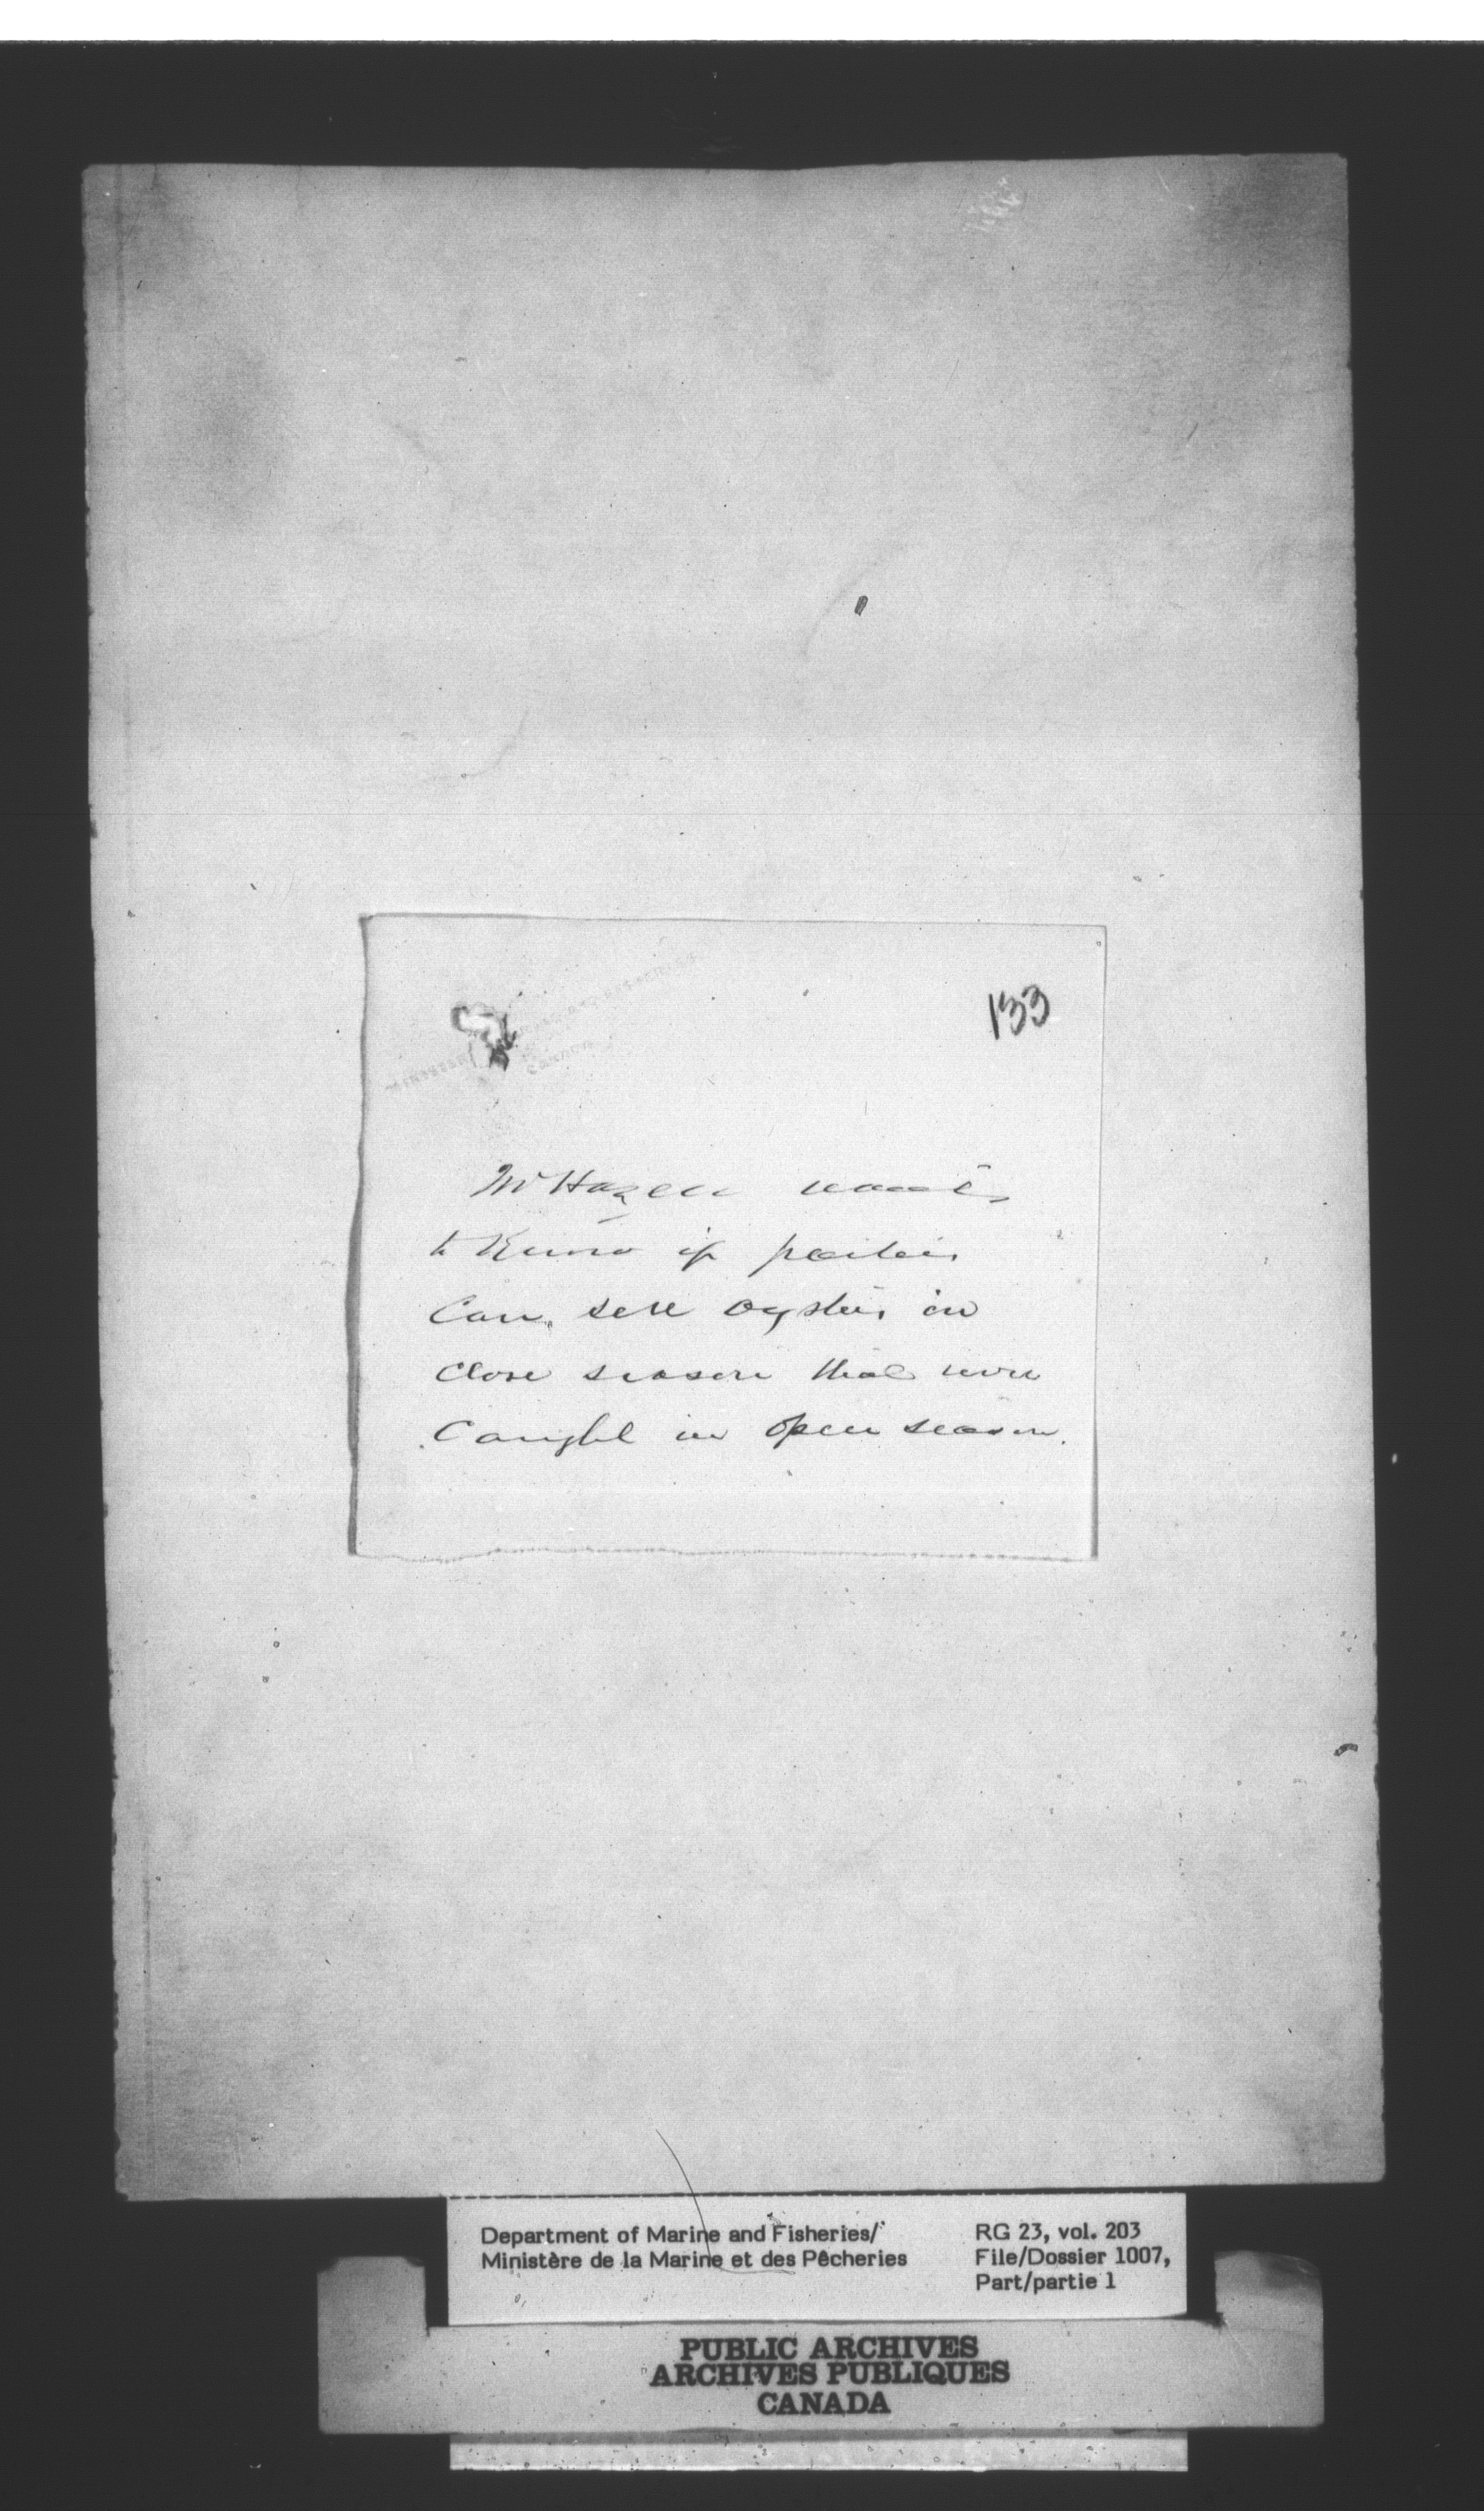 133
Mr Hazen wants
to Know if parties
Can sell Oysters in
Close season that were
Caught in Open season.
Department of Marine and Fisheries/
Ministère de la Marine et des Pêcheries
RG 23, vol. 203
File/Dossier 1007,
Part/partie 1
PUBLIC ARCHIVES
ARCHIVES PUBLIQUES
CANADA